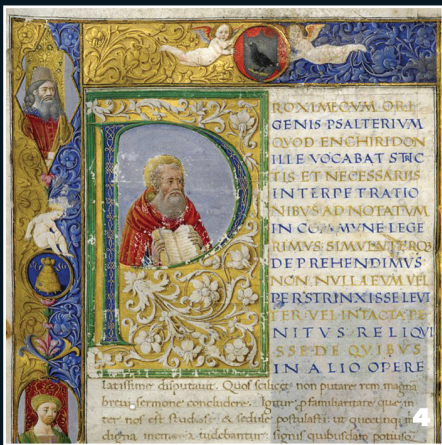 PROXIME CVM ORI
GENIS PSALTERIVM
QVOD ENCHIRIDON
ILLE VOCABAT STRIC
TIS ET NECESSARIIS
INTERPETRATIO
NIBVS ADNOTATVM
IN COMMVNE LEGE
RIMVS SIMVL VTERQ
DEPREHENDIMVS
NON NVLLA EVM VEL
PERSTRINXISSE LEVI
TER VEL INTACTA PE
NITVS RELIQVI
SSE DE QVIBVS
IN ALIO OPERE
latissime disputauit. Quos scilicet non putare rem magna
breui sermone concludere. Igitur pro familiaritate que in
ter nos est studiose & sedule postulasti: ut quecunque m
digna memoria uidebantur: signis quibusdam potius
4